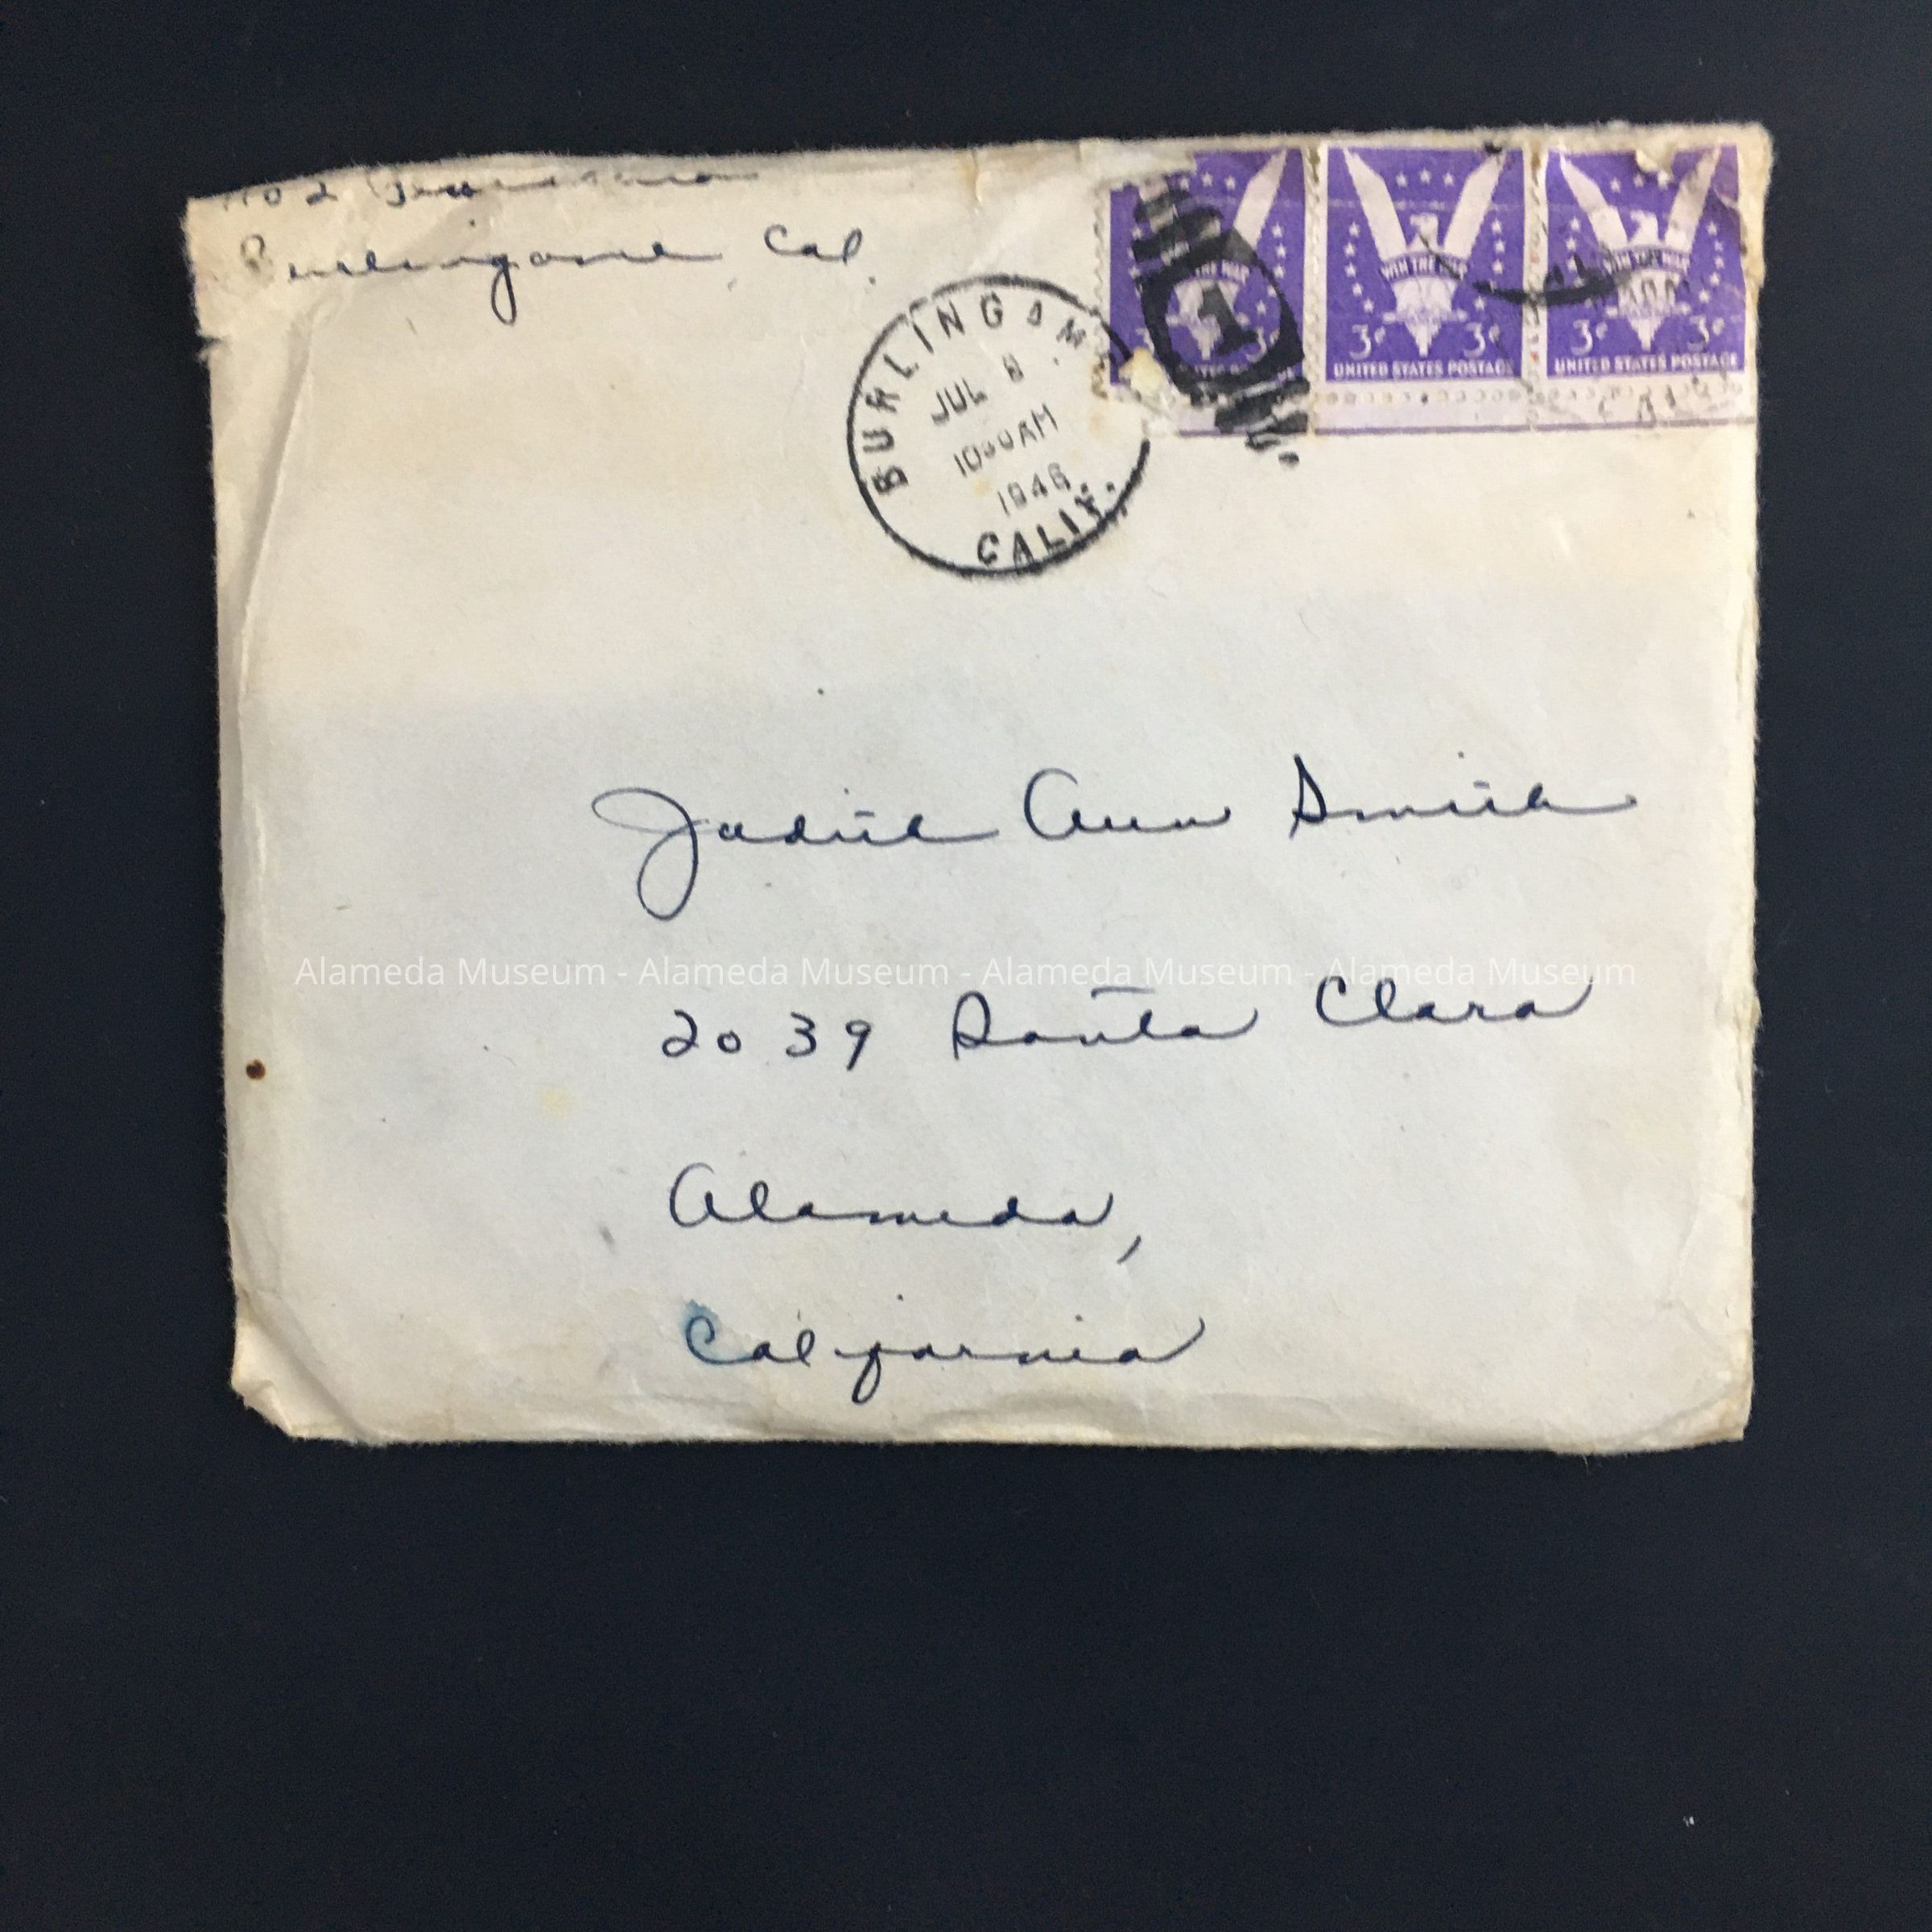 Burlingame Cal.
BURLINGAME
JUL 8
1946
CALIF.
1
WIN THE WAR
3¢ 3¢
UNITED STATES POSTAGE
WIN THE WAR
3¢ 3¢
UNITED STATES POSTAGE
Judith Ann Smith
Alameda Museum - Alameda Museum - Alameda Museum - Alameda Museum
2039 Santa Clara
Alameda,
California